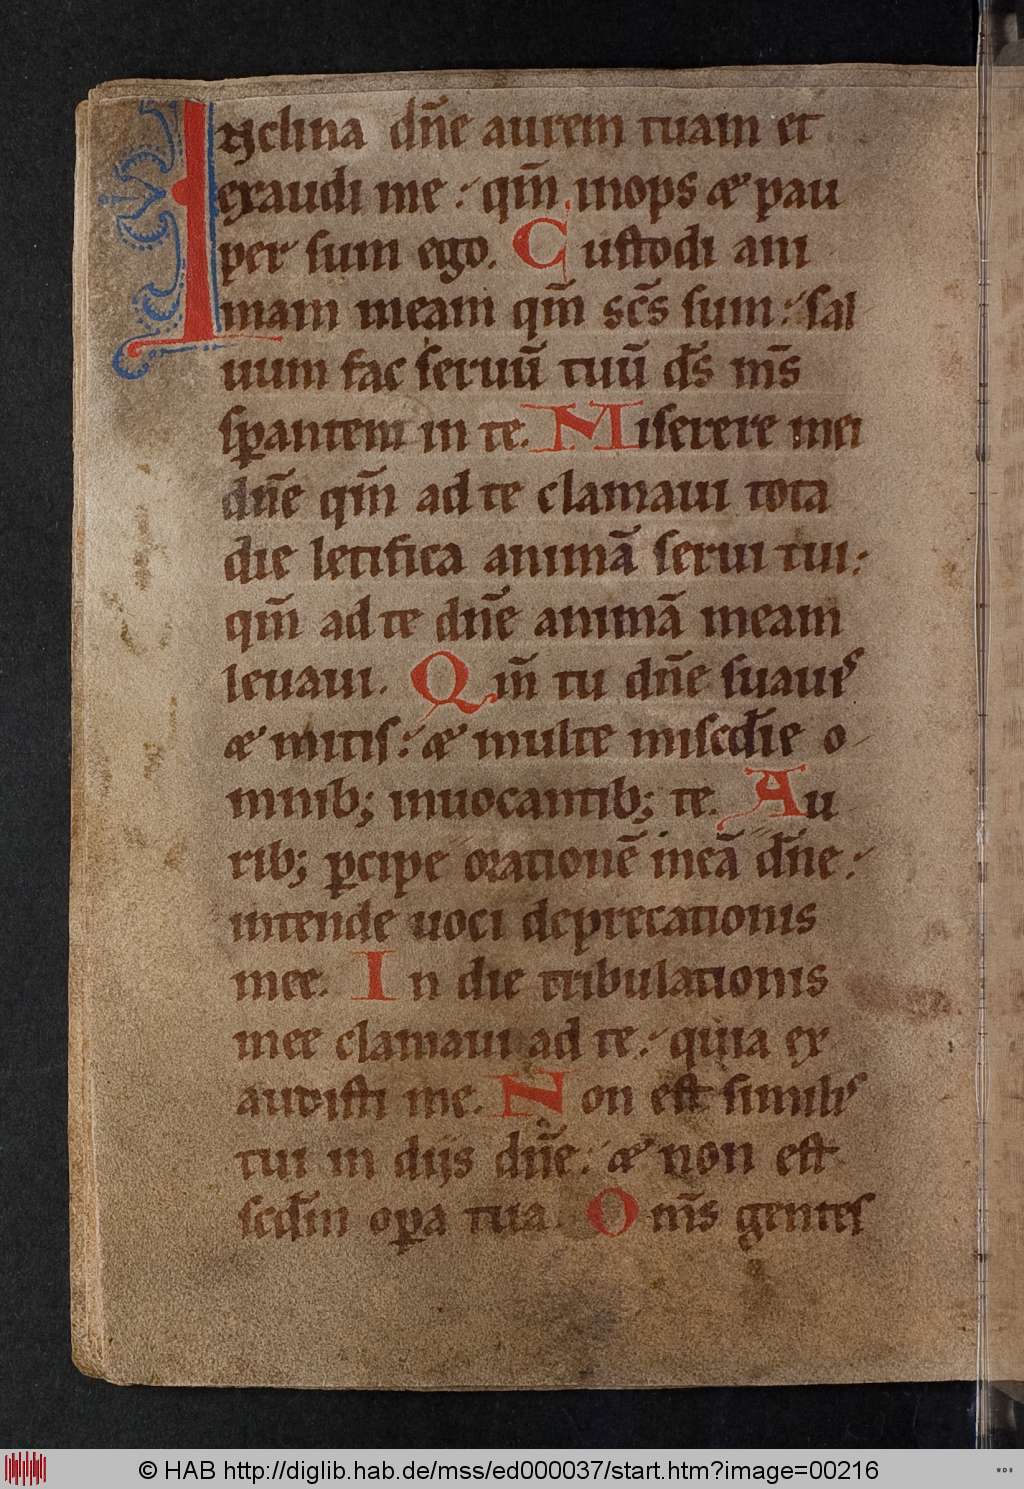 Inclina dn̄e aurem tuam et
exaudi me : qm̄ inops æ pau
per sum ego. Custodi ani
mam meam qm̄ sc̄s sum : sal
uum fac seruū tuū ds̄ ms̄
sꝑantem in te. Miserere mei
dn̄e qm̄ ad te clamaui tota
die letifica animā serui tui :
qm̄ ad te dn̄e animā meam
leuaui. Qm̄ tu dn̄e suauis
æ mitis : æ multe miscd̄ie o
mnib; inuocantib; te. Au
rib; ꝑcipe orationē meā dn̄e :
intende uoci deprecationis
mee. In die tribulationis
mee clamaui ad te : quia ex
audisti me. Non est similis
tui in diis dn̄e : æ non est
scd̄m oꝑa tua. Oms̄ gentes
© HAB http://diglib.hab.de/mss/ed000037/start.htm?image=00216